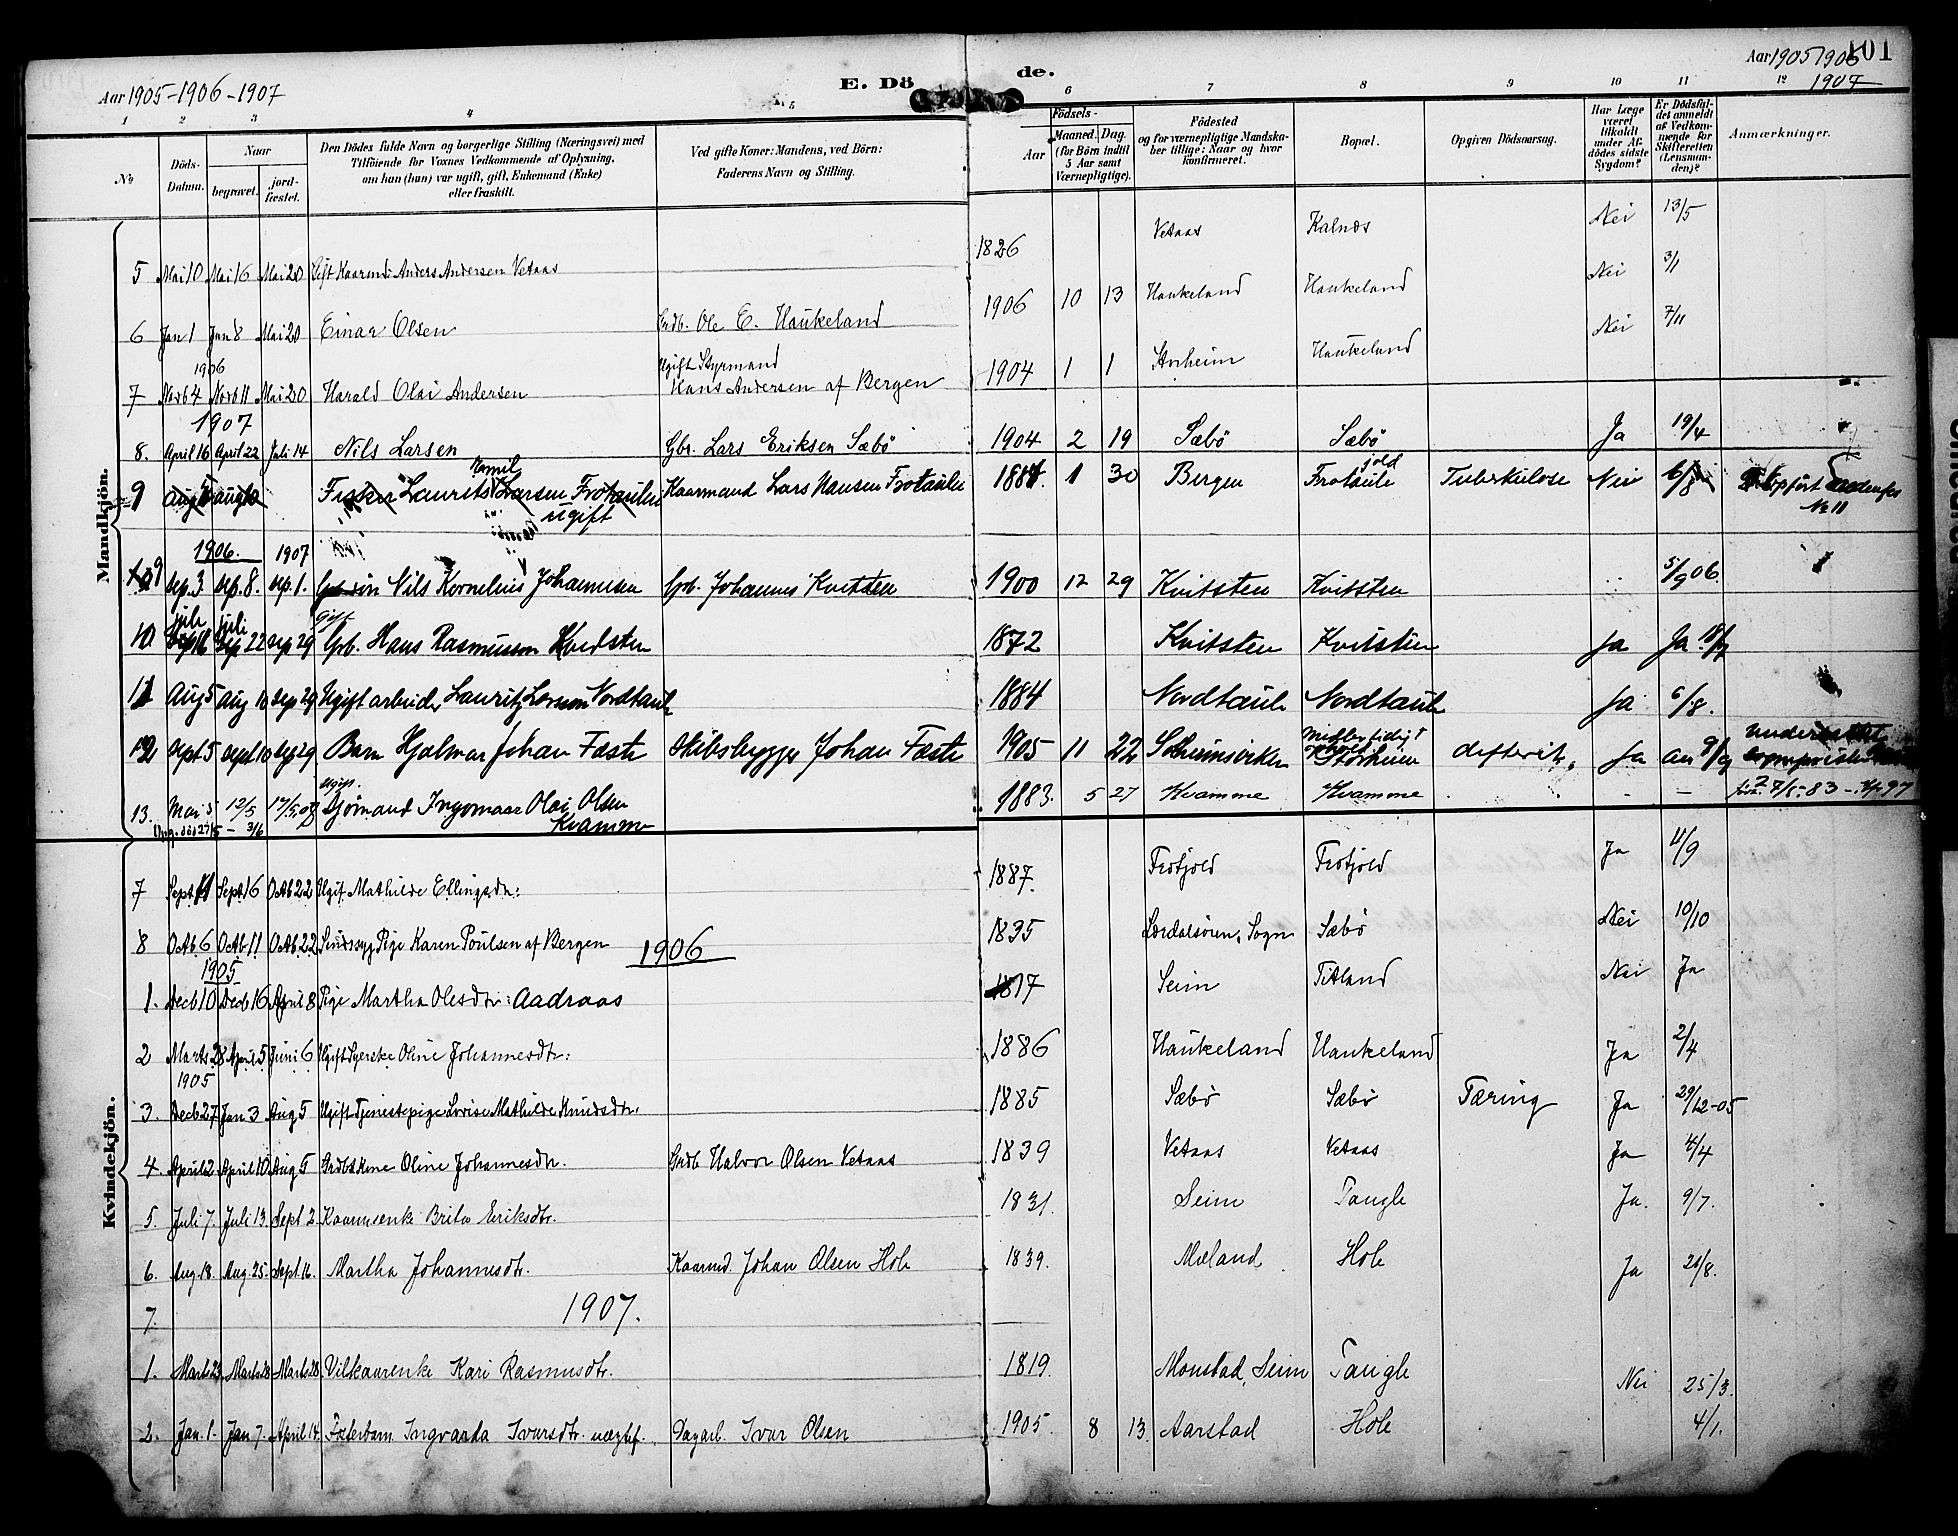 Aar 1905-1906-1907
E. Döde.
Aar 1905 1906
1907
101
1 2 3 4 5 6 7 8 9 10 11 12
№
Döds-Datum.
Naar
begravet.
jord-fæstet.
Den Dödes fulde Navn og borgerlige Stilling (Næringsvei) med
Tilföiende for Voxnes Vedkommende af Oplysning,
om han (hun) var ugift, gift, Enkemand (Enke)
eller fraskilt.
Ved gifte Koner: Mandens, ved Börn:
Faderens Navn og Stilling.
Födsels-
Aar
Maaned. Dag.
(for Börn indtil
5 Aar samt
Værnepligtige).
Födested
og for værnepligtige Mandska-
ber tillige: Naar og hvor
konfirmeret.
Bopæl.
Opgiven Dödsaarsag.
Har Læge
været
tilkaldt
under Af-
dödes sidste
Sygdom?
Er Dödsfal-
det anmeldt
af Vedkom-
mende for
Skifteretten
(Lensman-
den)?
Anmærkninger.
Mandkjön.
5 Mai 10 Mai 16 Mai 20 Gift Kaarmd. Anders Andersen Vetaas 1826 Vetaas Kalnæs Nei 13/5
6 Jan 1 Jan 8 Mai 20 Einar Olsen Grdb. Ole E. Haukeland 1906 10 13 Haukeland Haukeland Nei 3/1
1906
7 Novb 4 Novb 11 Mai 20 Harald Olai Andersen Ugift Styrmand Hans Andersen af Bergen 1904 1 1 Storheim Haukeland Nei 7/11
1907
8. April 16 April 22 Juli 14 Nils Larsen Gbr. Lars Eriksen Sæbö 1904 2 19 Sæbö Sæbö Ja 19/4
9 Aug Aug 10 Fisker Laurits Larsen ugift Kaarmand Lars Hansen 1 30 Bergen Tuberkulose Nei 6/8 opfört
№ 11
1906. 1907
9 Sep. 3 sep. 8. sep. 1. Nils Kornelius Johannesen Grb. Johannes Kvitsten 1900 12 29 Kvitsten Kvitsten 5/9 06.
juli juli gift
10. 16 22 sep 29 Grb. Hans Rasmussen Kvidsten 1872 Kvitsten Kvitsten Ja Ja
11 Aug 5 aug 10 sep 29 Ugift arbeider Lauritz Larsen Nordtaule 1884 Nordtaule Nordtaule Ja 6/8.
12 Sept 5 sept 10 sep 29 Barn Hjalmar Johan Faste Skibsbygger Johan Faste 1905 11 22 midlertidig ophold Storheim difterit. Ja
13. Mai 5 12/5 17/5.08 ugift. Sjömand Ingomaar Olai Olsen Kvamme 1883. 5 27 Kvamme Kvamme - -
Kvindekjön.
7 Sept. 11 Sept. 16 Octb 22 Ugif. Mathilde Ellingsdtr: 1887. Frotjold Frotjold Ja 11/9
8 Octb 6 Octb. 11 Octb. 22 Sindssyg Pige Karen Poulsen af Bergen 1835 Lærdalsören, Sogn Sæbö Nei 10/10
1906
1905
1. Decb 10 Decb 16 April 8 Pige Martha Olesdtr: Aadraas 1817 Seim Titland Nei Ja
2 Marts 28 April 5 Juni 6 Ugift Syerske Oline Johannesdtr: 1886 Haukeland Haukeland Ja 2/4
1905
3. Decb 27 Jan 3 Aug 5 Ugift Tjenestepige Lovise Mathilde Knudsdtr. 1885 Sæbö Sæbö Tæring Ja 29/12-05
4. April 2 April 10 Aug 5 Grdbskone Oline Johannesdtr. Grdb Halvor Olsen Vetaas 1839 Vetaas Vetaas Ja 4/4
5. Juli 7. Juli 13. Sept 2. Kaarmsenke Brita Eriksdtr. 1831. Seim Tangle Ja. 9/7.
6. Aug 18. Aug. 25. Sept. 16. Martha Johannesdtr. Kaarmd. Johan Olsen Hole 1839. Mæland Hole Ja 26/8.
7. 1907.
1. Marts 23 Marts 28 Marts 28. Vilkaarenke Kari Rasmusdtr. 1819. Monstad, Seim Tangle Nei 25/3.
2. Jan. 1. Jan 7. April 14. Fosterbarn Ingvarda Ivarsdtr. uægtef. Dagarb. Ivar Olsen 1905. 8 13. Aarstad Hole 4/1.